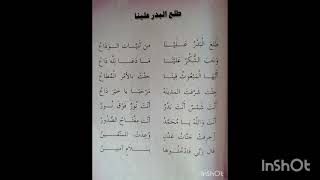 طلع البدر علينا
طَلَعَ الْبَدْرُ عَلَيْنَا مِن ثَنِيَّاتِ الْوَدَاعْ
وَجَبَ الشُّكْرُ عَلَيْنَا مَا دَعَا لِلَّهِ دَاعْ
أَيُّهَا الْمَبْعُوثُ فِينَا جِئْتَ بِالْأَمْرِ الْمُطَاعْ
جِئْتَ شَرَّفْتَ الْمَدِينَة مَرْحَبًا يَا خَيْرَ دَاعْ
أَنْتَ شَمْسٌ أَنْتَ بَدْرٌ أَنْتَ نُورٌ فَوْقَ نُورْ
أَنْتَ يَا مُحَمَّدْ أَنْتَ مِفْتَاحُ الصُّدُورْ
جَنَّاتُ عَدْنٍ وُعِدَتْ
قَالَ فَادْخُلُوهَا بِسَلَامٍ آمِنِينْ
InShOt